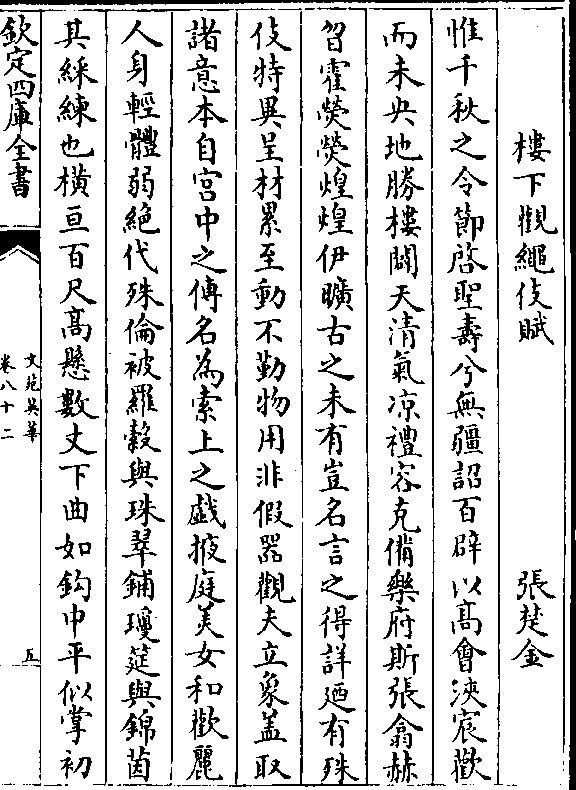 樓下觀繩伎賦　張楚金
惟千秋之令節啓聖壽兮無疆詔百辟以高會浹宸歡
而未央地勝樓闕天清氣凉禮容克備樂府斯張翕赫
曶霍熒熒煌煌伊曠古之未有豈名言之得詳迺有殊
伎特異呈材累至動不勤物用非假器觀夫立象盖取
諸意本自宫中之傳名為索上之戲掖庭美女和歡麗
人身輕體弱絶代殊倫被羅縠與珠翠鋪瓊筵與錦茵
其綵練也横亘百尺髙懸數丈下曲如鈎中平似掌初
欽定四庫全書
文苑英華
卷八十二
五